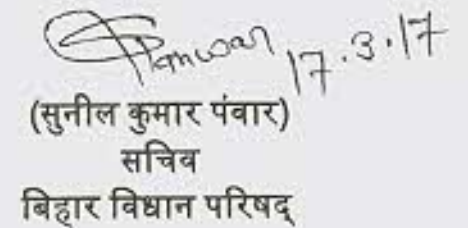 Panwar 17.3.17
(सुनील कुमार पंवार)
सचिव
बिहार विधान परिषद्